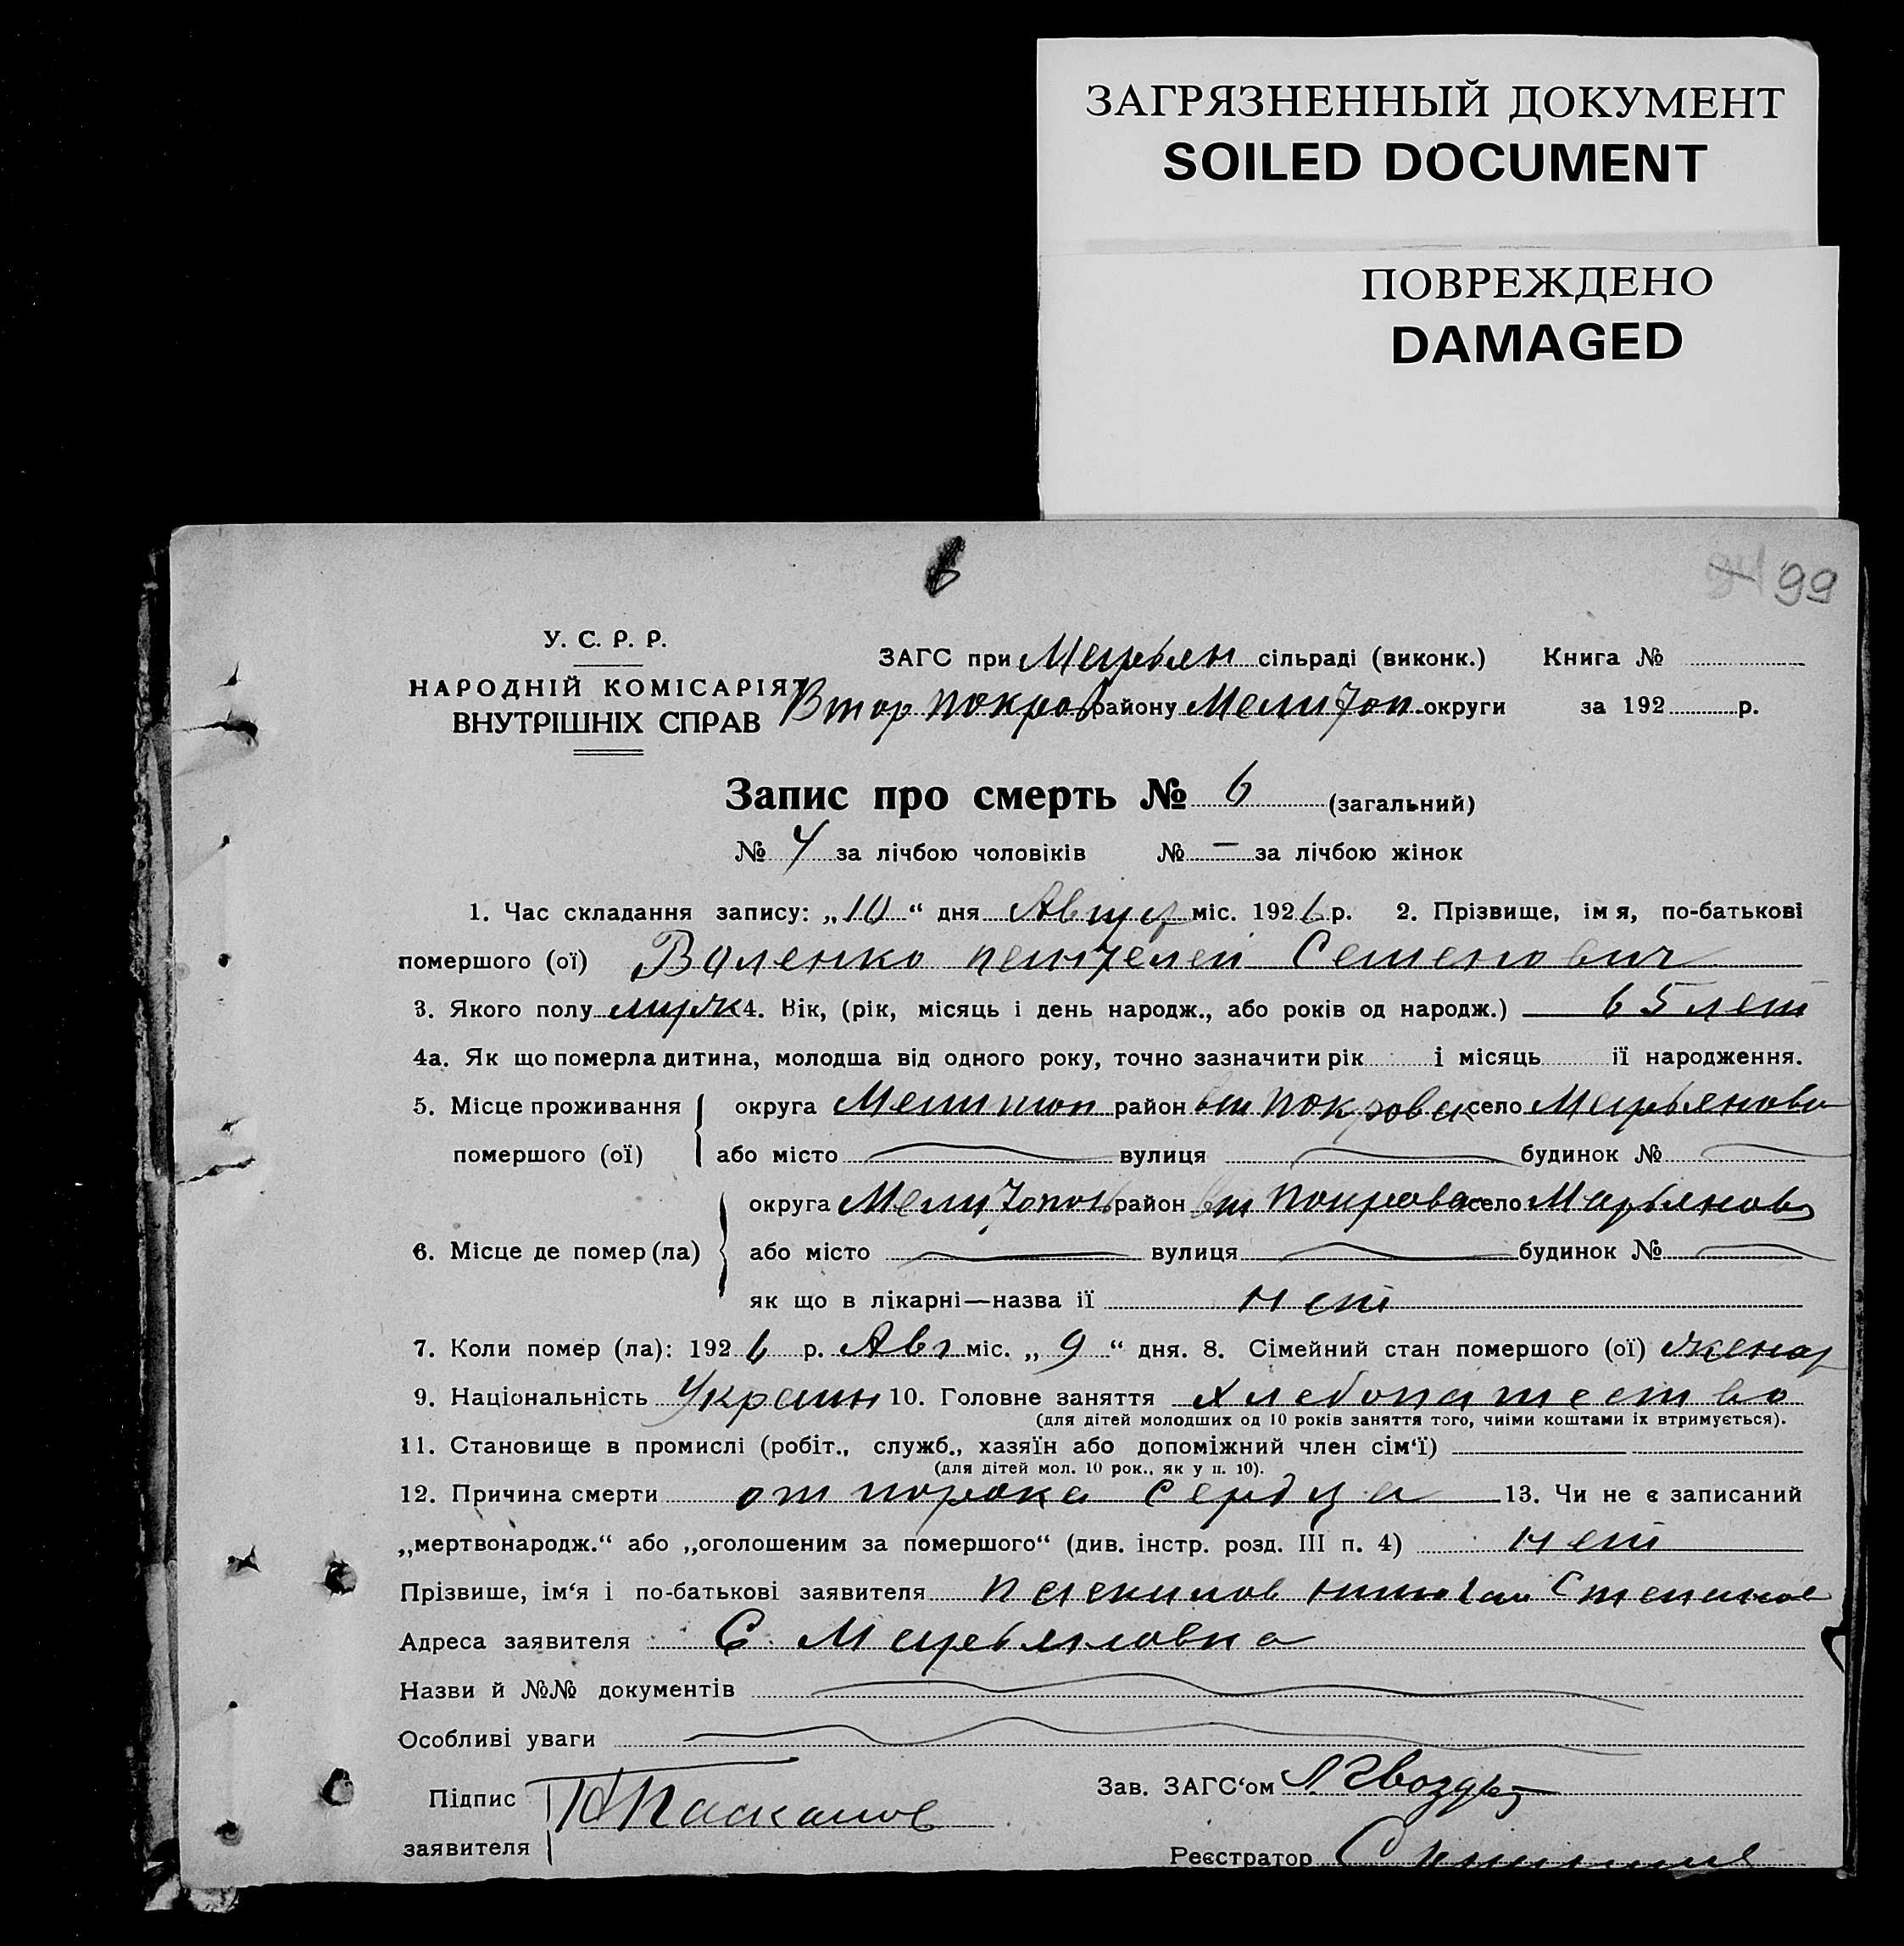 ЗАГРЯЗНЕННЫЙ ДОКУМЕНТ
SOILED DOCUMENT
ПОВРЕЖДЕНО
DAMAGED
6
94 99
У. С. Р. Р.
НАРОДНІЙ КОМІСАРІЯТ
ВНУТРІШНІХ СПРАВ
ЗАГС при Марьян сільраді (виконк.) Книга №
Втор покров району Мелитоп округи за 192 р.
Запис про смерть № 6 (загальний)
№ 4 за лічбою чоловіків № – за лічбою жінок
1. Час складання запису: „10“ дня Август міс. 1926 р. 2. Прізвище, імя, по-батькові
помершого (ої) Валенко пантелей Семенович
3. Якого полу мужк 4. Вік, (рік, місяць і день народж., або років од народж.) 65 лет
4а. Як що померла дитина, молодша від одного року, точно зазначити рік і місяць її народження.
5. Місце проживання округа Мелитоп район вт покровск село Марьяновка
помершого (ої) або місто вулиця будинок №
округа Мелитополь район вт покровск село Марьянов
6. Місце де помер (ла) або місто вулиця будинок №
як що в лікарні—назва її нет
7. Коли помер (ла): 1926 р. Авг міс. „9“ дня. 8. Сімейний стан помершого (ої) женат
9. Національність Украин 10. Головне заняття хлебопашество
(для дітей молодших од 10 років заняття того, чиїми коштами їх втримується).
11. Становище в промислі (робіт., служб., хазяїн або допоміжний член сім‘ї)
(для дітей мол. 10 рок., як у п. 10).
12. Причина смерти от порока сердца 13. Чи не є записаний
„мертвонародж.“ або „оголошеним за помершого“ (див. інстр. розд. III п. 4) нет
Прізвише, ім‘я і по-батькові заявителя Степанов
Адреса заявителя С. Марьяновка
Назви й №№ документів
Особливі уваги
Підпис
заявителя
Зав. ЗАГС‘ом
Реєстратор